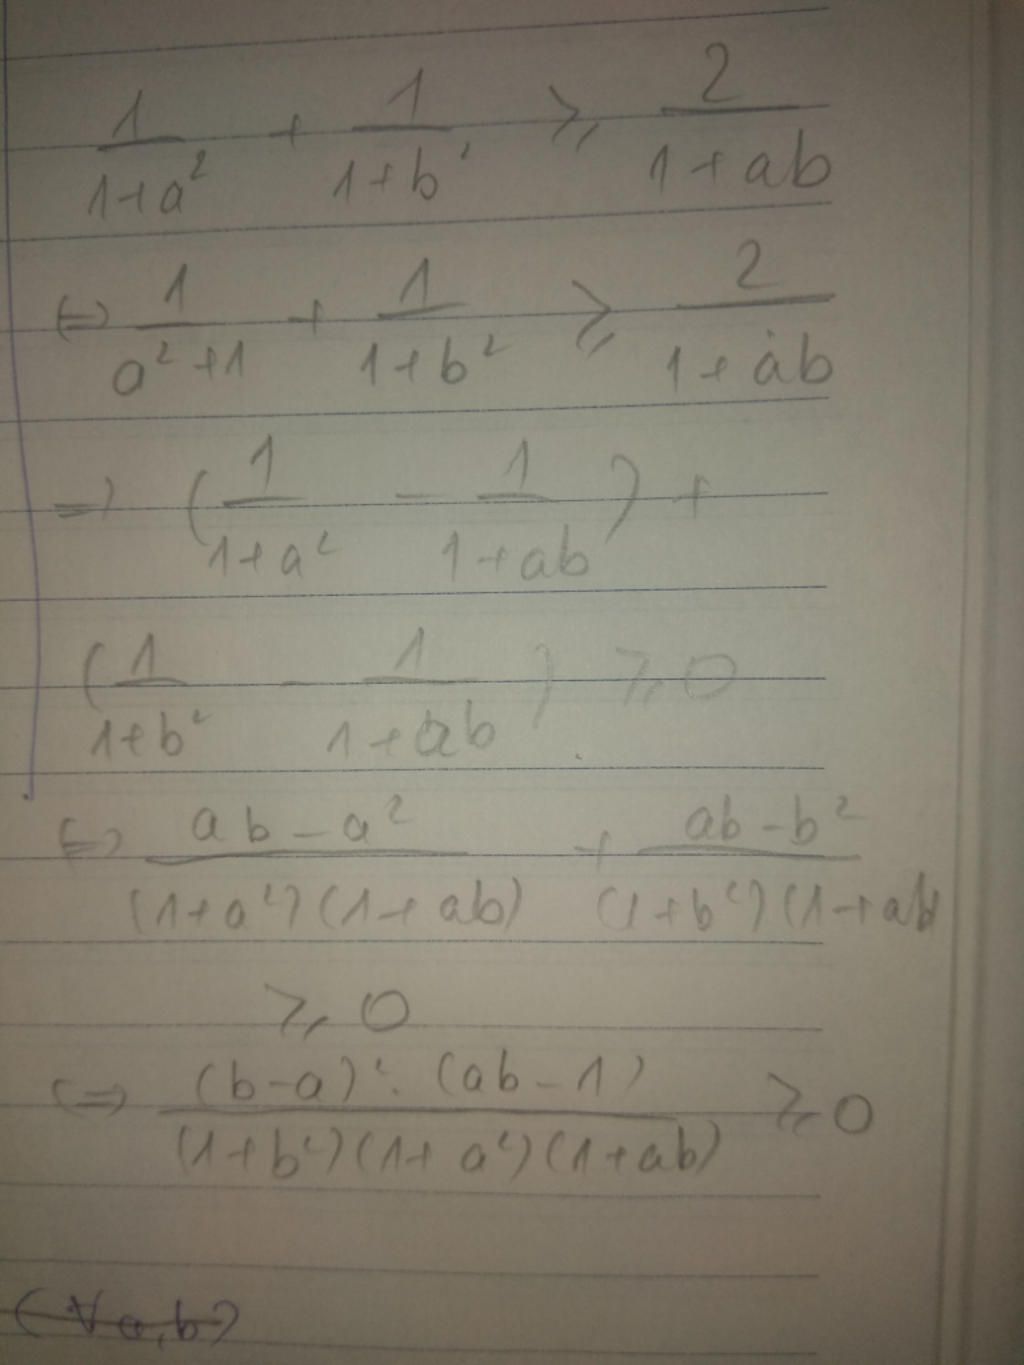 1/(1+a²) + 1/(1+b²) ⩾ 2/(1+ab)
⇔ 1/(a²+1) + 1/(1+b²) ⩾ 2/(1+ab)
⇒ (1/(1+a²) - 1/(1+ab)) +
(1/(1+b²) - 1/(1+ab)) ⩾ 0
⇔ (ab-a²)/((1+a²)(1+ab)) + (ab-b²)/((1+b²)(1+ab)
⩾ 0
⇔ ((b-a)².(ab-1))/((1+b²)(1+a²)(1+ab)) ⩾ 0
(∀a,b)